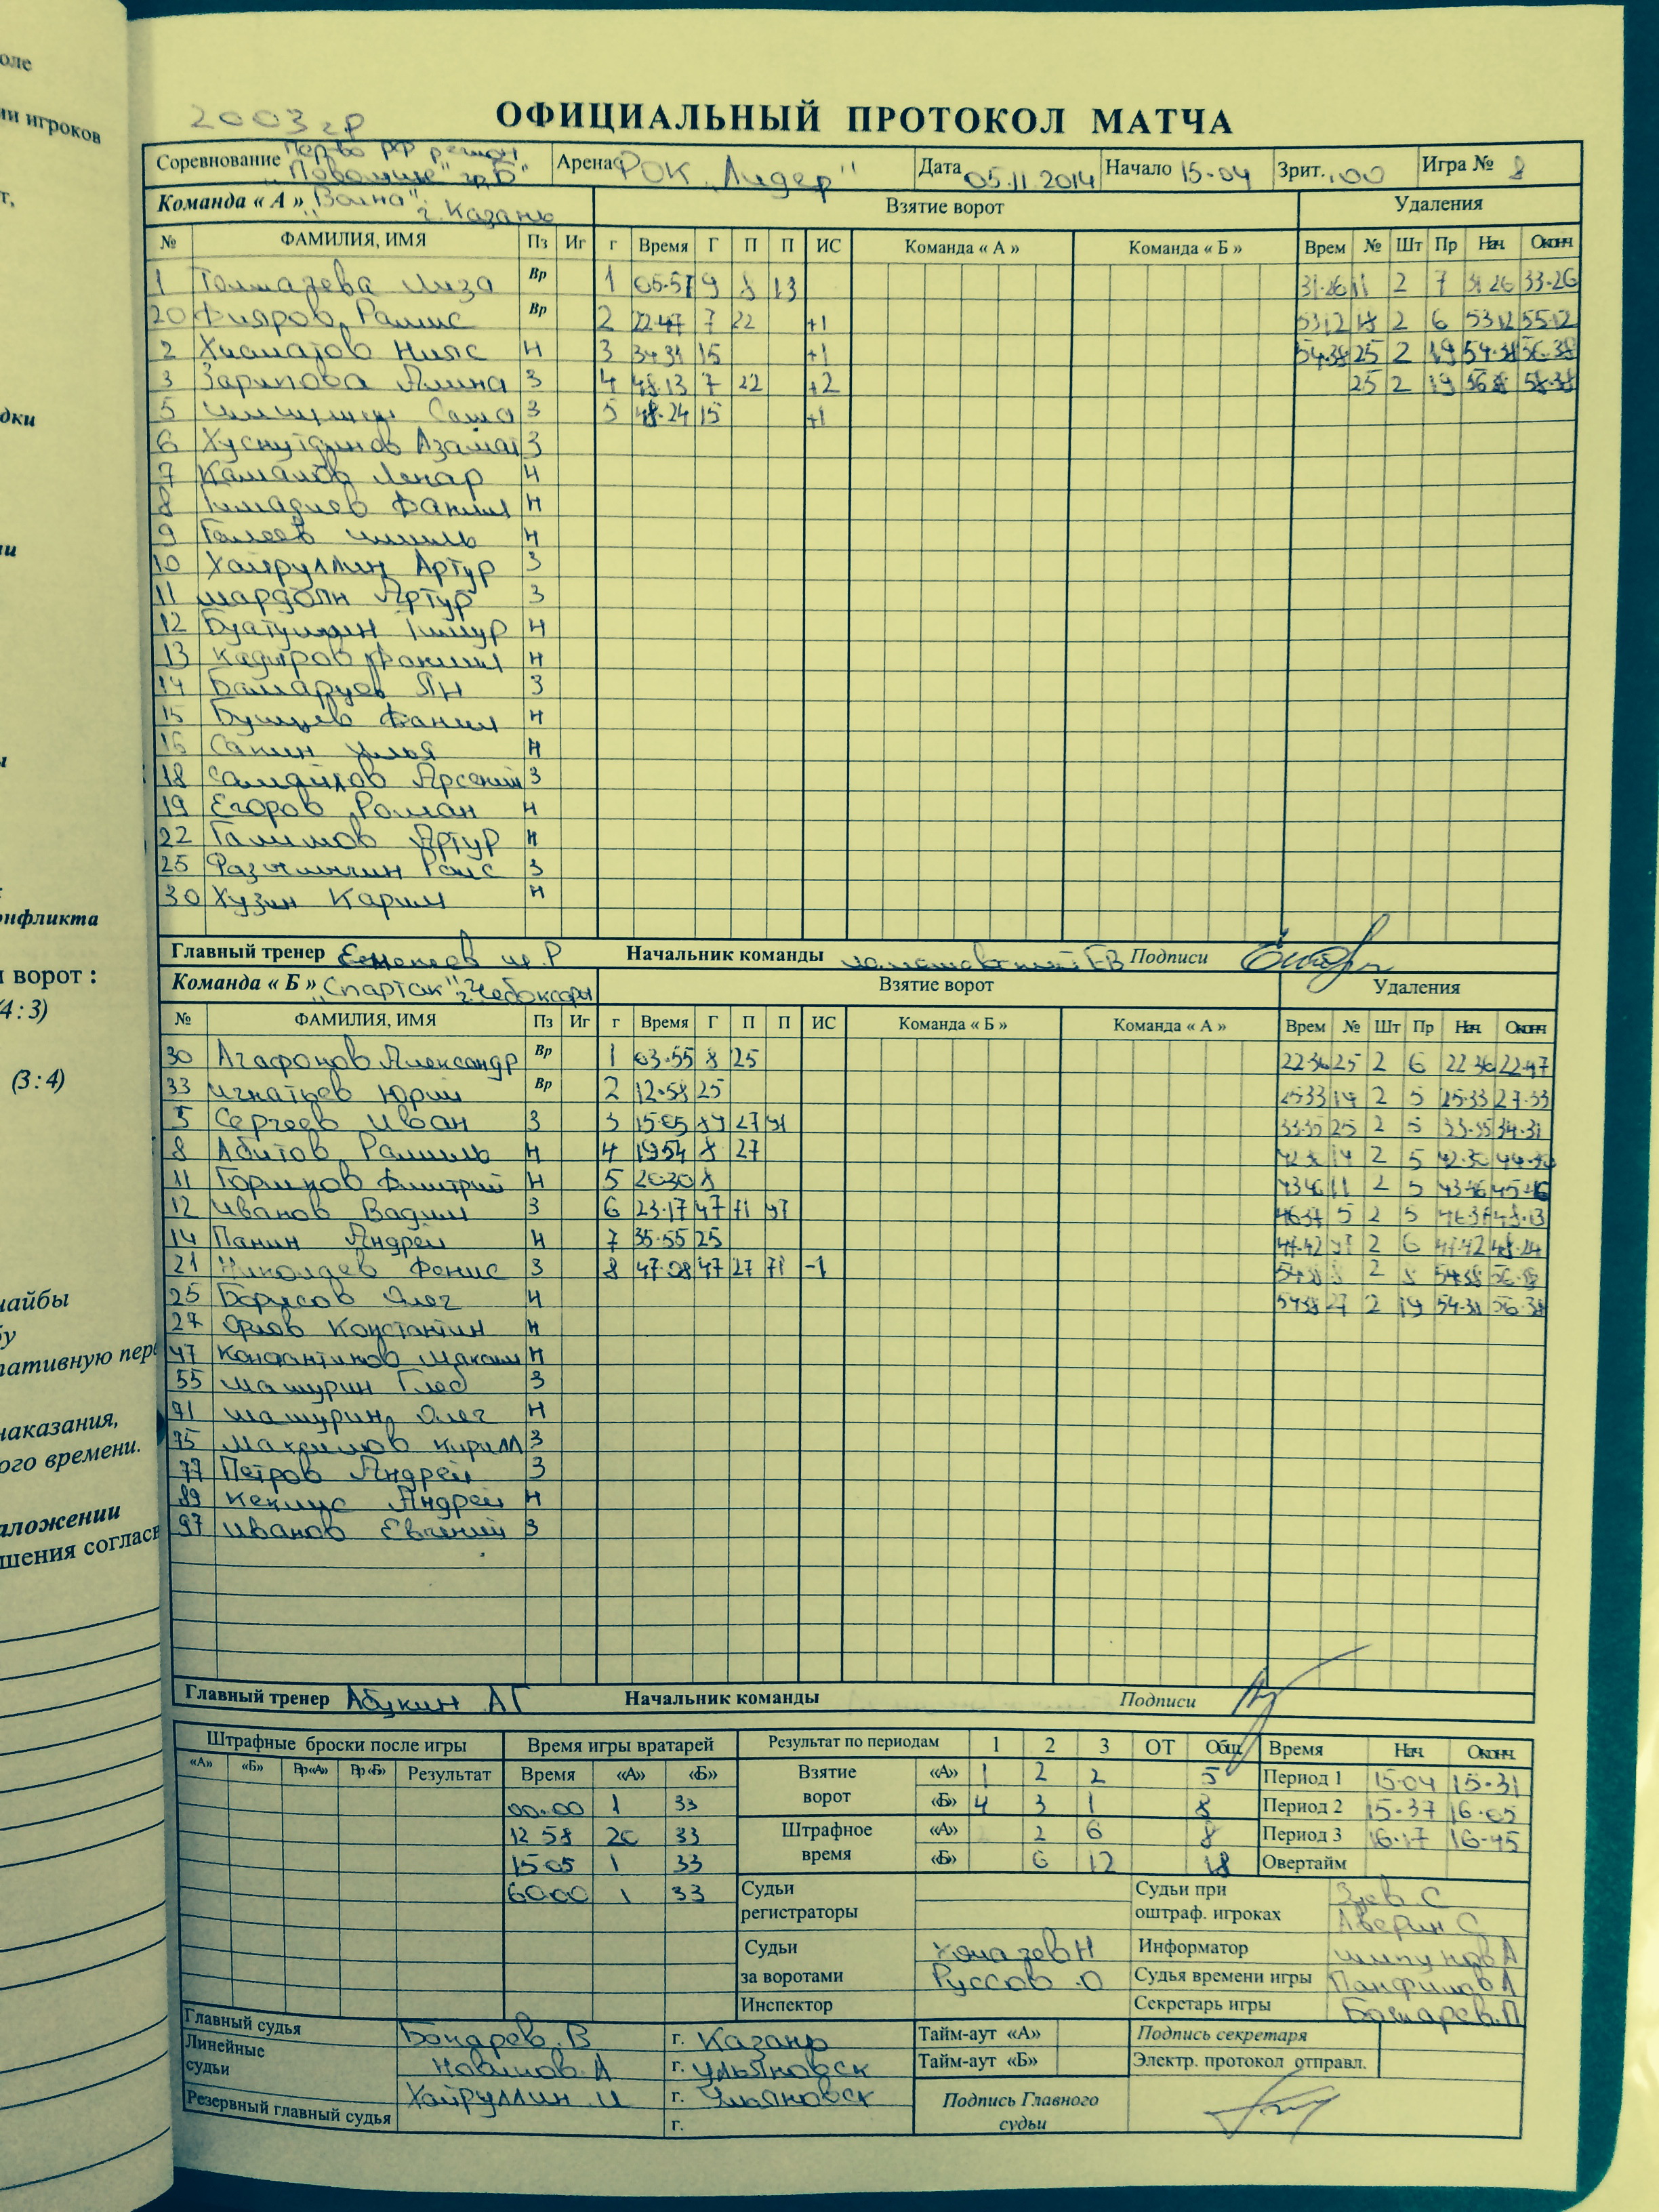 оле
ии игроков
т,
дки
ии
ы
онфликта
и ворот :
(4 : 3)
(3 : 4)
шайбы
бу
тативную пере
наказания,
ого времени.
аложении
шения соглась
2003 гр
ОФИЦИАЛЬНЫЙ ПРОТОКОЛ МАТЧА
Соревнование Перво РФ регион "Поволжье" гр.Б" Арена ФОК "Лидер" Дата 05.11.2014 Начало 15-04 Зрит. 100 Игра № 8
Команда « А » "Волна" г. Казань Взятие ворот Удаления
№ ФАМИЛИЯ, ИМЯ Пз Иг г Время Г П П ИС Команда « А » Команда « Б » Врем № Шт Пр Нач. Оконч.
1 Лиза Вр 1 05.57 9 8 13 31-26 11 2 7 31 26 33-26
20 Фияров Рамис Вр 2 22.47 7 22 +1 53 12 18 2 6 53 12 55 12
2 Хисматов Нияс Н 3 34 31 15 +1 54.38 25 2 19 54.38 56.38
3 Зарипова Алина З 4 48.13 7 22 +2 25 2 19 56 38 58.38
5 Саша З 5 48.24 15 +1
6 Хуснутдинов Азамат З
7 Камалов Ленар Н
8 Данил Н
9 Галеев Н
10 Хайруллин Артур З
11 Артур З
12 Тимур Н
13 Кадыров Н
14 Ян З
15 Данил Н
16 Санин Илья Н
18 Самойлов Арсений З
19 Егоров Роман Н
22 Галимов Артур Н
25 Раис З
30 Хузин Карим Н
Главный тренер Начальник команды Подписи
Команда « Б » "Спартак" г.Чебоксары Взятие ворот Удаления
№ ФАМИЛИЯ, ИМЯ Пз Иг г Время Г П П ИС Команда « Б » Команда « А » Врем № Шт Пр Нач. Оконч.
30 Агафонов Александр Вр 1 03.55 8 25 22 36 25 2 6 22 36 22 47
33 Игнатьев Юрий Вр 2 12.58 25 25 33 14 2 5 25.33 27.33
5 Сергеев Иван З 3 15.05 89 27 91 33 35 25 2 5 33.35 34.31
8 Абитов Рамиль Н 4 19 54 8 27 14 2 5 42.30 44.30
11 Горшков Дмитрий Н 5 20 30 8 43 46 11 2 5 43 46 45 46
12 Иванов Вадим З 6 23.17 47 71 97 46 37 5 2 5 46 37 48.13
14 Панин Андрей Н 7 35.55 25 47.42 97 2 6 47.42 48.24
21 Николаев Денис З 8 47.08 47 27 71 -1 54 38 8 2 8 54 38
25 Борисов Олег Н 54 38 27 2 19 54.38 56.38
27 Орлов Константин Н
47 Константинов Максим Н
55 Машурин Глеб З
71 Машурин Олег Н
75 Кирилл З
77 Петров Андрей З
89 Андрей Н
97 Иванов Евгений З
Главный тренер Абукин АГ Начальник команды Подписи
Штрафные броски после игры Время игры вратарей Результат по периодам 1 2 3 ОТ Общ. Время Нач. Оконч.
«А» «Б» Вр«А» Вр«Б» Результат Время «А» «Б» Взятие ворот «А» 1 2 2 5 Период 1 15-04 15-31
00.00 1 33 «Б» 4 3 1 8 Период 2 15-37 16-05
12 58 20 33 Штрафное время «А» 2 6 8 Период 3 16-17 16-45
15 05 1 33 «Б» 6 12 18 Овертайм
60.00 1 33 Судьи регистраторы Судьи при оштраф. игроках Зуев С
Аверин С
Судьи за воротами Информатор
Руссов О Судья времени игры Панфилов А
Инспектор Секретарь игры
Главный судья Бондарев В г. Казань Тайм-аут «А» Подпись секретаря
Линейные судьи г. Ульяновск Тайм-аут «Б» Электр. протокол отправл.
Хайруллин И г. Ульяновск Подпись Главного судьи
Резервный главный судья г.